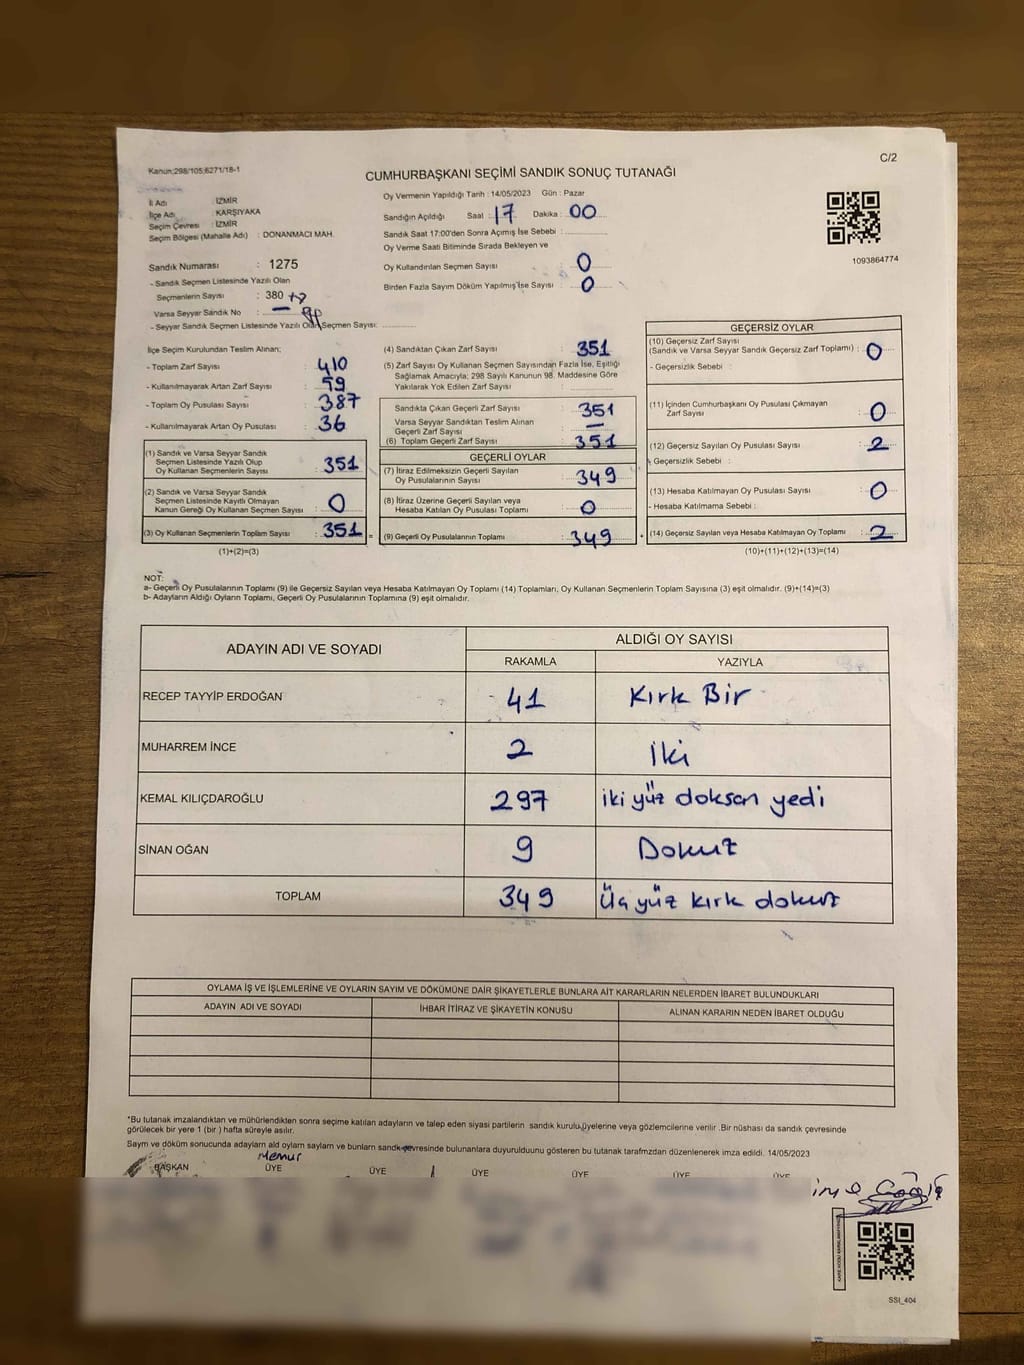 C/2
Kanun:298/105;6271/18-1
CUMHURBAŞKANI SEÇİMİ SANDIK SONUÇ TUTANAĞI
İl Adı : İZMİR
İlçe Adı : KARŞIYAKA
Seçim Çevresi : İZMİR
Seçim Bölgesi (Mahalle Adı) : DONANMACI MAH.
Oy Vermenin Yapıldığı Tarih : 14/05/2023 Gün : Pazar
Sandığın Açıldığı Saat : 17 Dakika : 00
Sandık Saat 17:00'den Sonra Açımış İse Sebebi :
Oy Verme Saati Bitiminde Sırada Bekleyen ve
Oy Kullandırılan Seçmen Sayısı : 0
Birden Fazla Sayım Döküm Yapılmış İse Sayısı : 0
1093864774
Sandık Numarası : 1275
- Sandık Seçmen Listesinde Yazılı Olan
Seçmenlerin Sayısı : 380 +7
Varsa Seyyar Sandık No : —
- Seyyar Sandık Seçmen Listesinde Yazılı Olan Seçmen Sayısı:
İlçe Seçim Kurulundan Teslim Alınan;
- Toplam Zarf Sayısı : 410
- Kullanılmayarak Artan Zarf Sayısı : 59
- Toplam Oy Pusulası Sayısı : 387
- Kullanılmayarak Artan Oy Pusulası : 36
(1) Sandık ve Varsa Seyyar Sandık
Seçmen Listesinde Yazılı Olup
Oy Kullanan Seçmenlerin Sayısı : 351
(2) Sandık ve Varsa Seyyar Sandık
Seçmen Listesinde Kayıtlı Olmayan
Kanun Gereği Oy Kullanan Seçmen Sayısı : 0
(3) Oy Kullanan Seçmenlerin Toplam Sayısı : 351 =
(1)+(2)=(3)
(4) Sandıktan Çıkan Zarf Sayısı : 351
(5) Zarf Sayısı Oy Kullanan Seçmen Sayısından Fazla İse, Eşitliği
Sağlamak Amacıyla; 298 Sayılı Kanunun 98. Maddesine Göre
Yakılarak Yok Edilen Zarf Sayısı :
Sandıkta Çıkan Geçerli Zarf Sayısı : 351
Varsa Seyyar Sandıktan Teslim Alınan
Geçerli Zarf Sayısı : —
(6) Toplam Geçerli Zarf Sayısı : 351
GEÇERLİ OYLAR
(7) İtiraz Edilmeksizin Geçerli Sayılan
Oy Pusulalarının Sayısı : 349
(8) İtiraz Üzerine Geçerli Sayılan veya
Hesaba Katılan Oy Pusulası Toplamı : 0
(9) Geçerli Oy Pusulalarının Toplamı : 349
GEÇERSİZ OYLAR
(10) Geçersiz Zarf Sayısı
(Sandık ve Varsa Seyyar Sandık Geçersiz Zarf Toplamı) : 0
- Geçersizlik Sebebi :
(11) İçinden Cumhurbaşkanı Oy Pusulası Çıkmayan
Zarf Sayısı : 0
(12) Geçersiz Sayılan Oy Pusulası Sayısı : 2
- Geçersizlik Sebebi :
(13) Hesaba Katılmayan Oy Pusulası Sayısı : 0
- Hesaba Katılmama Sebebi :
(14) Geçersiz Sayılan veya Hesaba Katılmayan Oy Toplamı : 2
(10)+(11)+(12)+(13)=(14)
NOT:
a- Geçerli Oy Pusulalarının Toplamı (9) ile Geçersiz Sayılan veya Hesaba Katılmayan Oy Toplamı (14) Toplamları, Oy Kullanan Seçmenlerin Toplam Sayısına (3) eşit olmalıdır. (9)+(14)=(3)
b- Adayların Aldığı Oyların Toplamı, Geçerli Oy Pusulalarının Toplamına (9) eşit olmalıdır.
ADAYIN ADI VE SOYADI ALDIĞI OY SAYISI
RAKAMLA YAZIYLA
RECEP TAYYİP ERDOĞAN 41 Kırk Bir
MUHARREM İNCE 2 iki
KEMAL KILIÇDAROĞLU 297 iki yüz doksan yedi
SİNAN OĞAN 9 Dokuz
TOPLAM 349 Üç yüz kırk dokuz
OYLAMA İŞ VE İŞLEMLERİNE VE OYLARIN SAYIM VE DÖKÜMÜNE DAİR ŞİKAYETLERLE BUNLARA AİT KARARLARIN NELERDEN İBARET BULUNDUKLARI
ADAYIN ADI VE SOYADI İHBAR İTİRAZ VE ŞİKAYETİN KONUSU ALINAN KARARIN NEDEN İBARET OLDUĞU
*Bu tutanak imzalandıktan ve mühürlendikten sonra seçime katılan adayların ve talep eden siyasi partilerin sandık kurulu üyelerine veya gözlemcilerine verilir .Bir nüshası da sandık çevresinde
görülecek bir yere 1 (bir ) hafta süreyle asılır.
Sayım ve döküm sonucunda adayların ald oyların sayların ve bunların sandk çevresinde bulunanlara duyurulduunu gösteren bu tutanak tarafmzdan düzenlenerek imza edildi. 14/05/2023
Memur
BAŞKAN ÜYE ÜYE ÜYE ÜYE ÜYE ÜYE
SSI_404